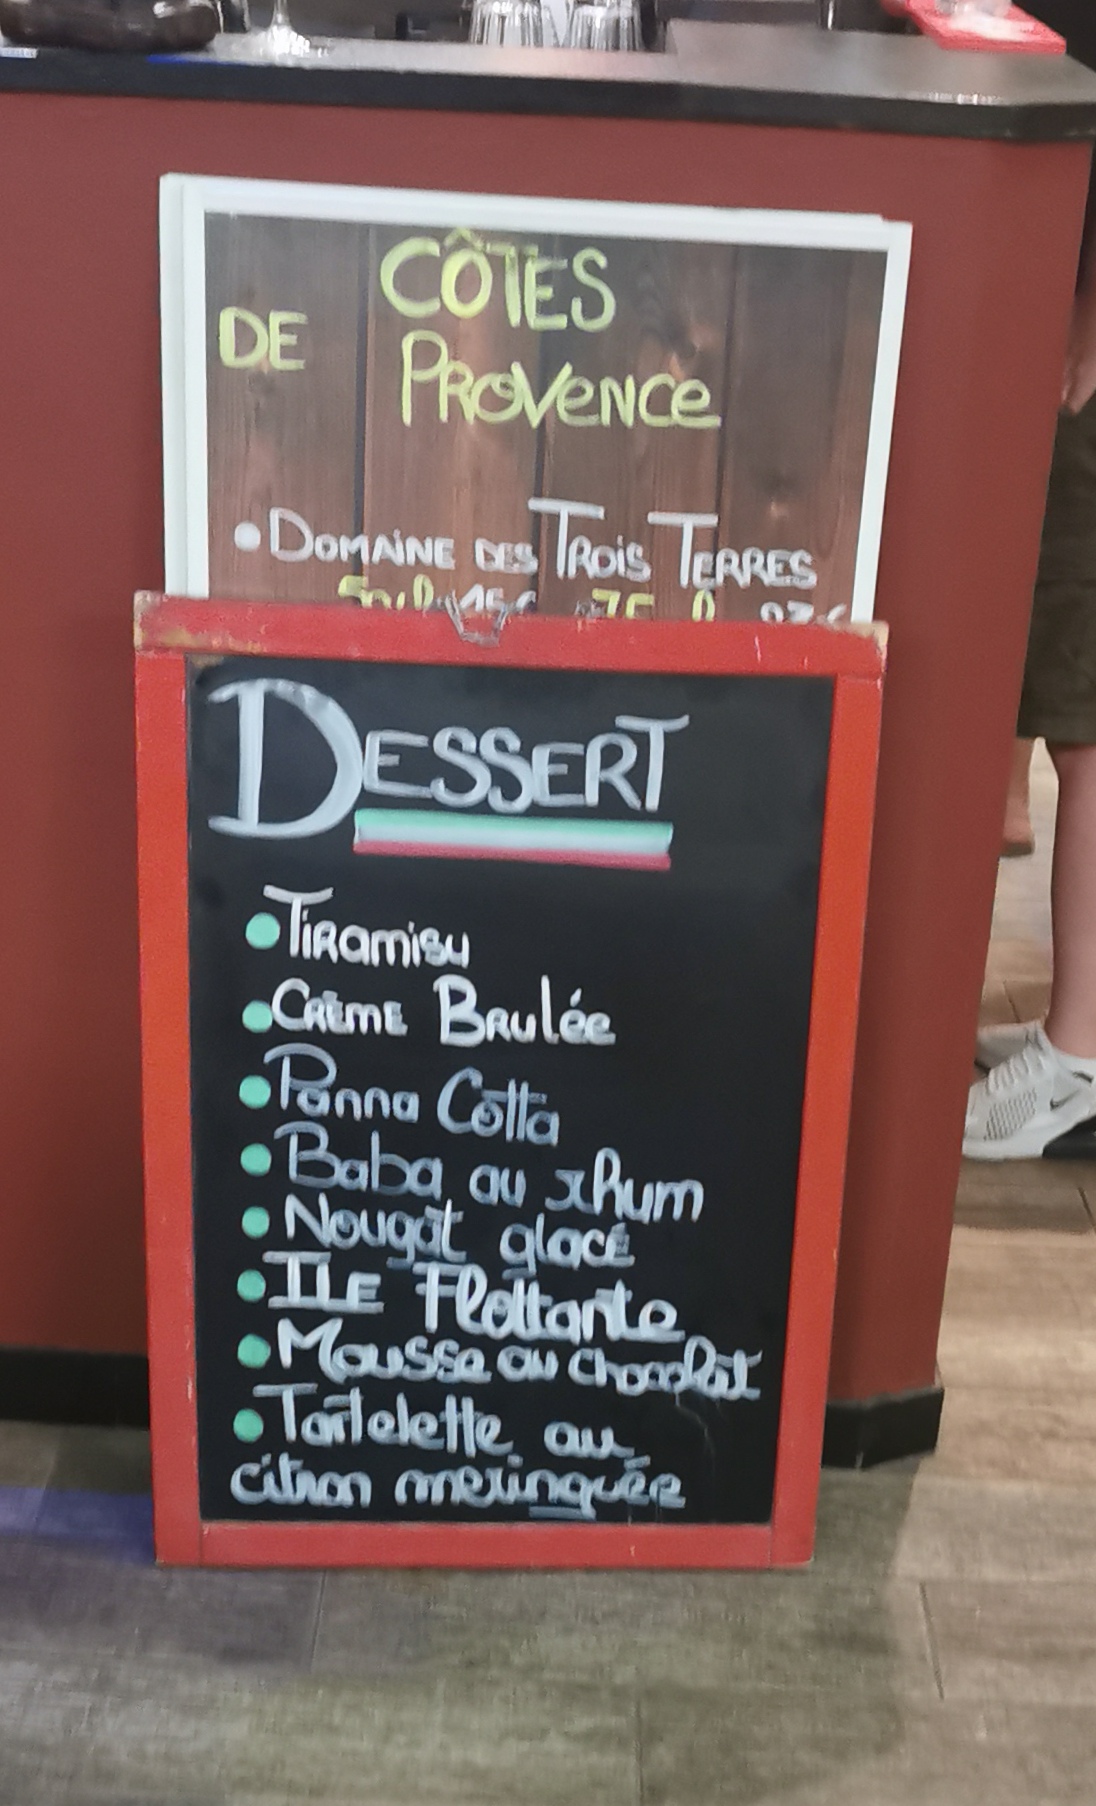 CÔTES
DE PROVENCE
• DOMAINE DES TROIS TERRES
DESSERT
• Tiramisu
• CRÈME BRULÉE
• Panna Cotta
• Baba au rhum
• Nougat glacé
• ILE Flottante
• Mousse au chocolat
• Tartelette au
citron meringuée